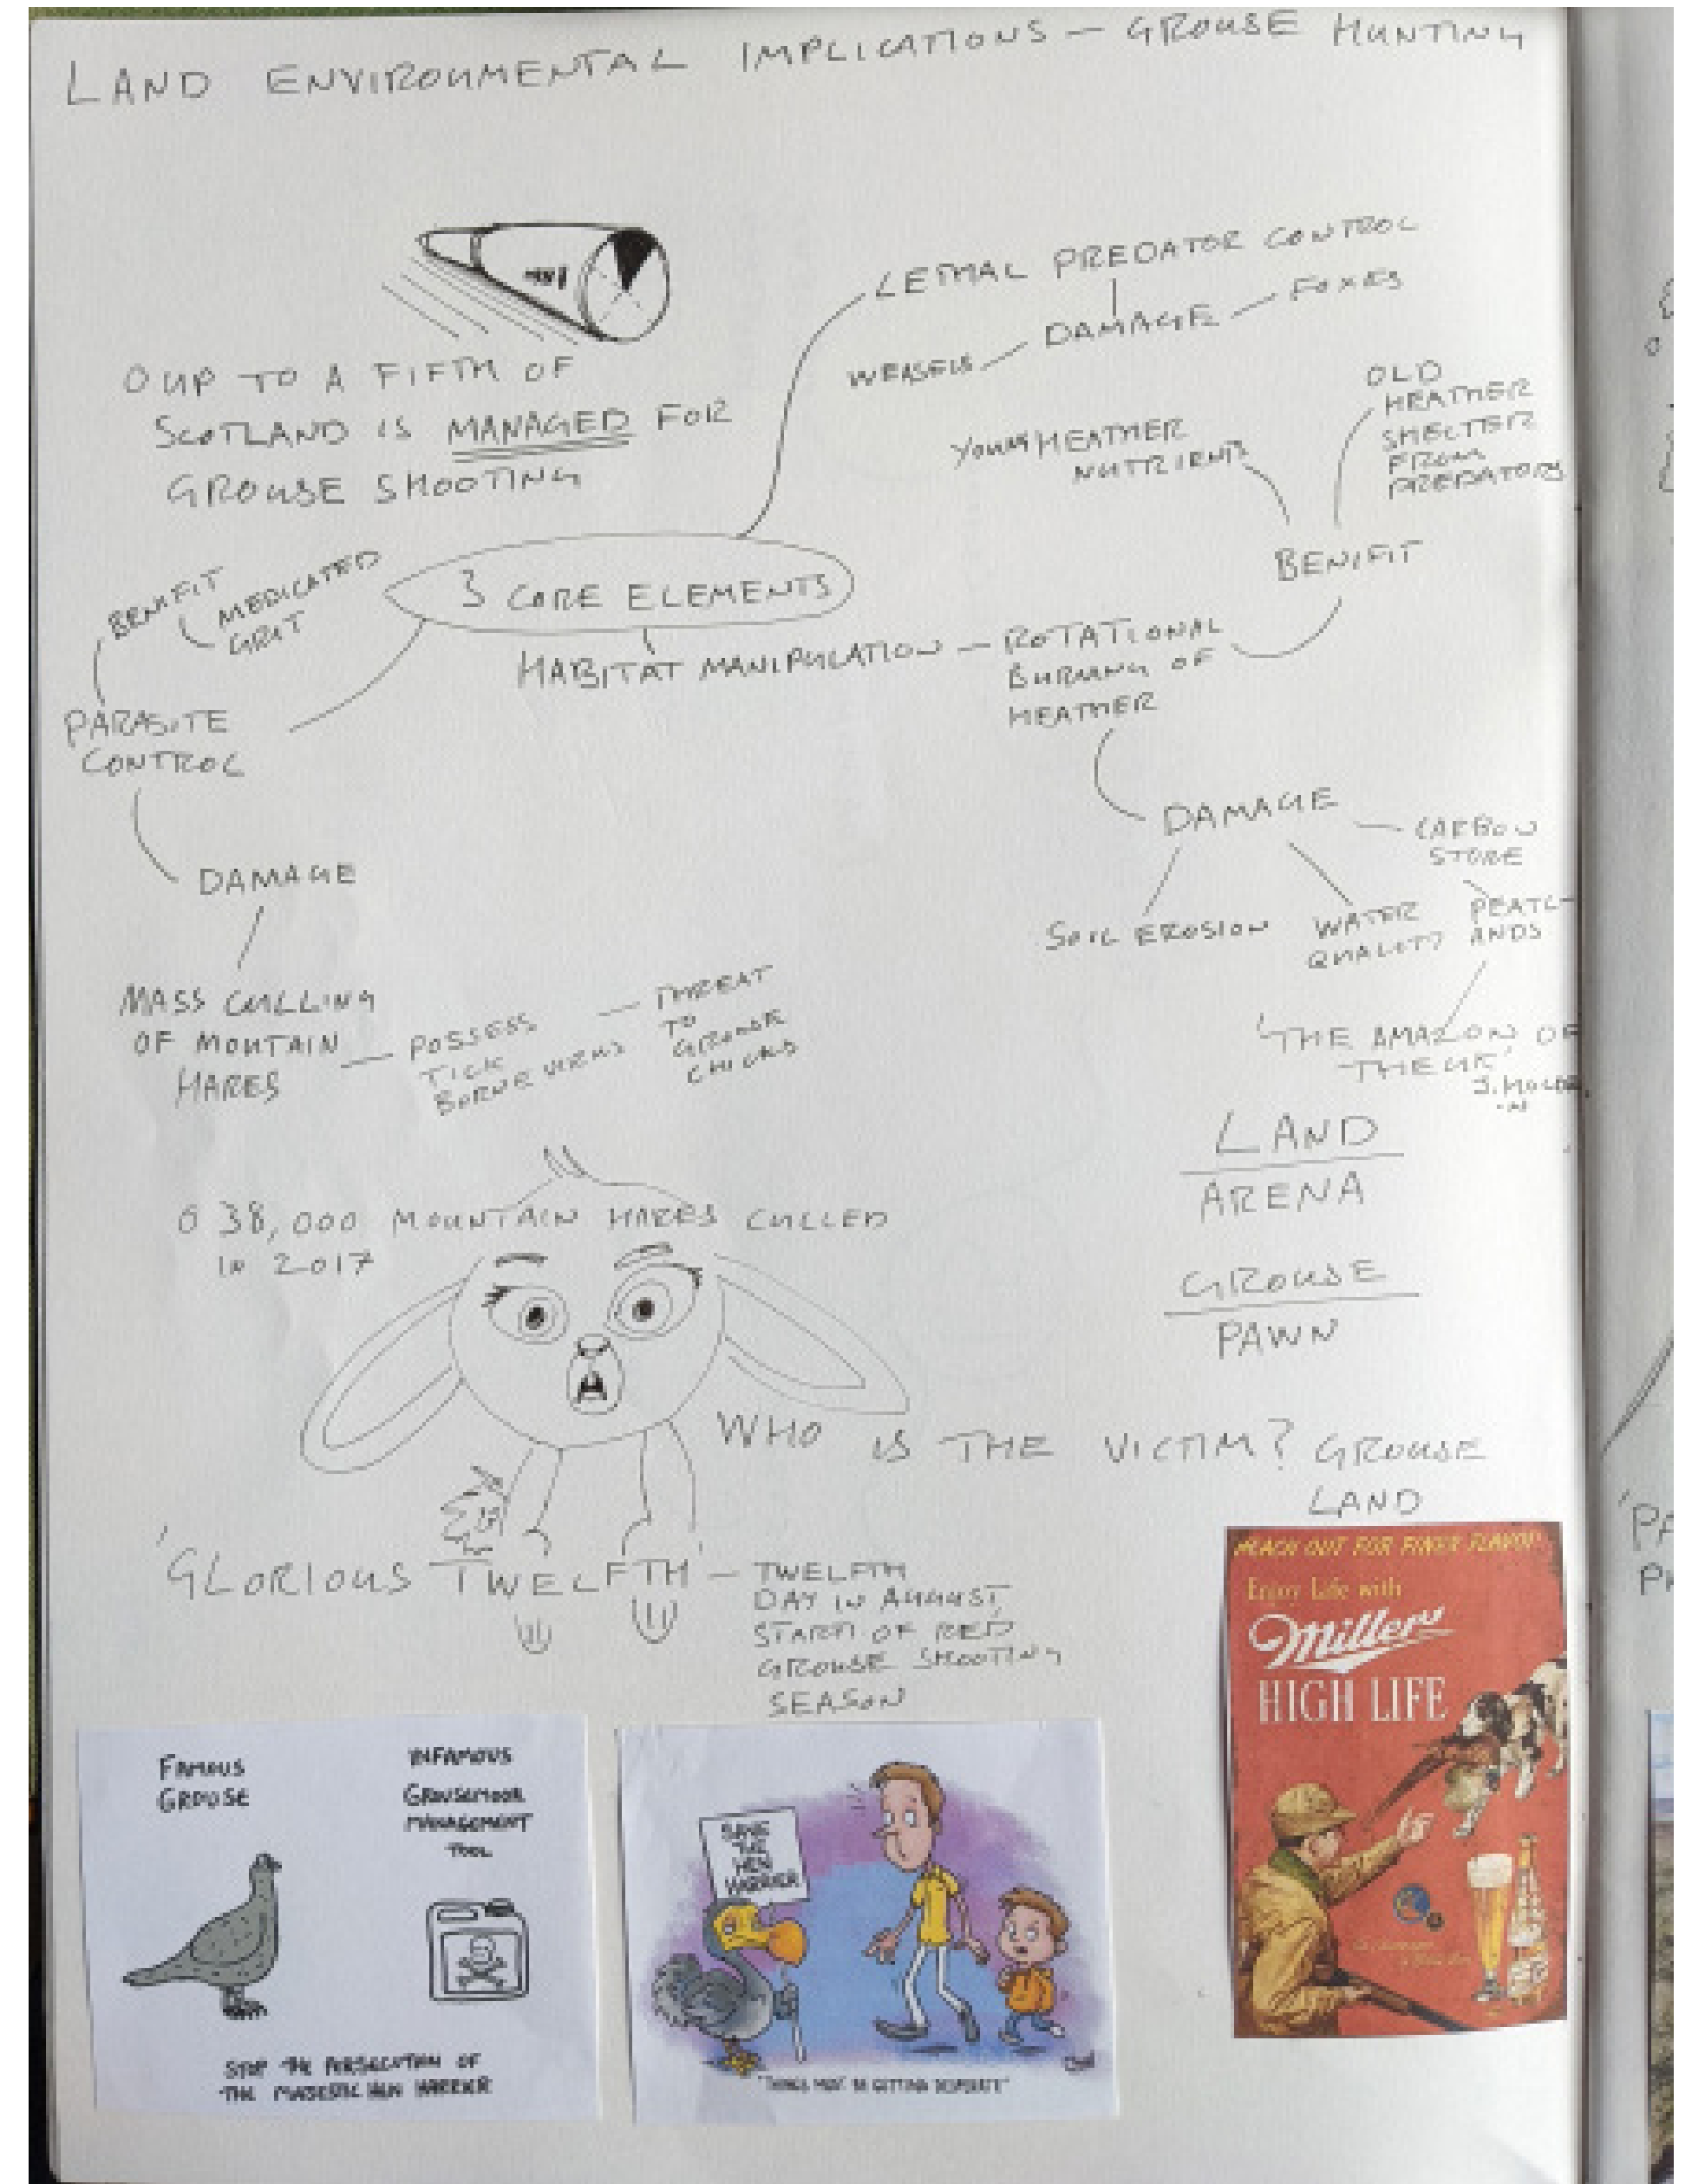 LAND ENVIROUMENTAL IMPLICATIONS – GROUSE HUNTING
O UP TO A FIFTH OF
SCOTLAND IS MANAGED FOR
GROUSE SHOOTING
LETHAL PREDATOR CONTROL
DAMAGE – FOXES
WEASELS
YOUNG HEATHER
NUTRIENTS
OLD
HEATHER
SHELTER
FROM
PREDATORS
BENIFIT
3 CORE ELEMENTS
BENIFIT
MEDICATED
GRIT
HABITAT MANIPULATION – ROTATIONAL
BURNING OF
HEATHER
PARASITE
CONTROL
DAMAGE
CARBON
STORE
SOIL EROSION
WATER
QUALITY
PEATL-
ANDS
'THE AMAZON OF
THE UK'
DAMAGE
MASS CULLING
OF MOUTAIN
HARES
POSSESS
TICK
BORNE VIRUS
THREAT
TO
GROUSE
CHICKS
LAND
ARENA
GROUSE
PAWN
O 38,000 MOUNTAIN HARES CULLED
IN 2017
WHO IS THE VICTIM? GROUSE
LAND
'GLORIOUS TWELFTH' – TWELFTH
DAY IN AUGUST,
START OF RED
GROUSE SHOOTING
SEASON
FAMOUS
GROUSE
INFAMOUS
GROUSEMOOR
MANAGEMENT
TOOL
STOP THE PERSECUTION OF
THE MAJESTIC HEN HARRIER
SAVE
THE
HEN
HARRIER
"THINGS MUST BE GETTING DESPERATE"
REACH OUT FOR FINER FLAVOR
Enjoy Life with
Miller
HIGH LIFE